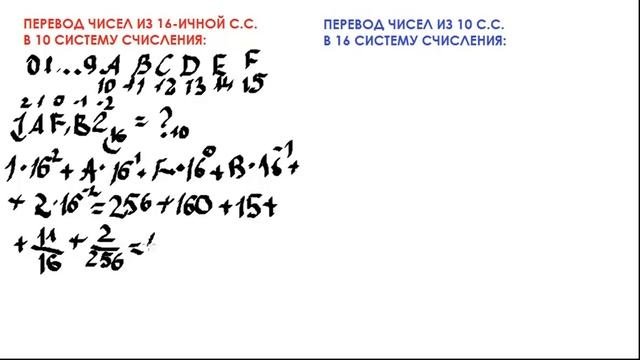 ПЕРЕВОД ЧИСЕЛ ИЗ 16-ИЧНОЙ С.С.
В 10 СИСТЕМУ СЧИСЛЕНИЯ:
ПЕРЕВОД ЧИСЕЛ ИЗ 10 С.С.
В 16 СИСТЕМУ СЧИСЛЕНИЯ:
0 1 ... 9 A B C D E F
10 11 12 13 14 15
2 1 0 -1 -2
1AF,B2₁₆ = ?.₁₀
1·16² + A·16¹ + F·16⁰ + B·16⁻¹ +
+ 2·16⁻² = 256 + 160 + 15 +
+ 11/16 + 2/256 =